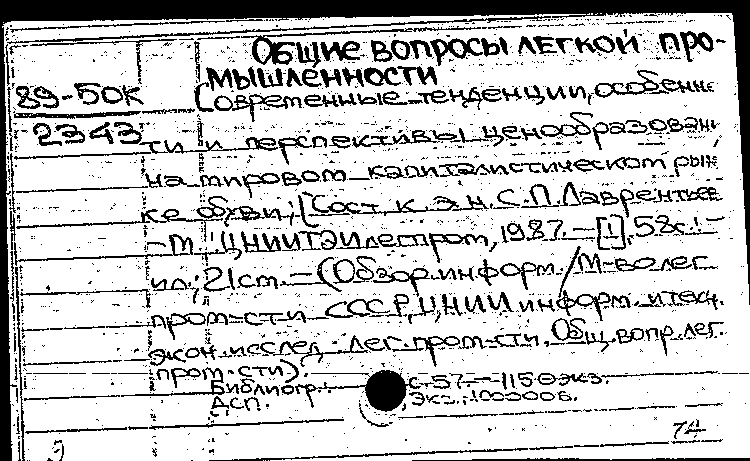 ОБЩИЕ ВОПРОСЫ ЛЕГКОЙ ПРО-
МЫШЛЕННОСТИ
89-50К
2343
Современные тенденции, особенно
ти и перспективы ценообразовани
на мировом капиталистическом рын
ке обуви / [Сост. к. э. н. С. П. Лаврентьев
- М.: ЦНИИТЭИлегпром, 1987. - [1], 58с.:
ил.; 21см. - (Обзор. информ. / М-во лег.
пром-сти СССР, ЦНИИ информ. и техн.
экон. исслед. лег. пром-сти. Общ. вопр. лег.
пром-сти).
Библиогр.: с. 57. - 1150экз.
ДСП. Экз.: 1000006.
74